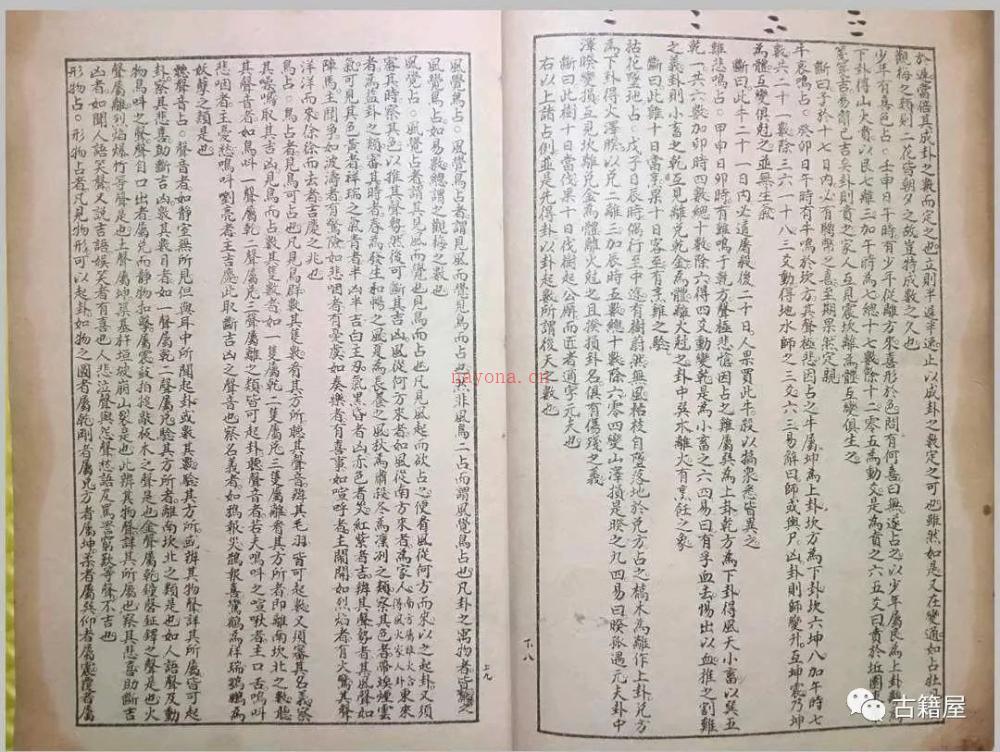 於遠當倍其成卦之數而定之也立則半遲半速止以成卦之數定之可也雖然如是又在變通如占牡丹
觀梅之類則二花皆朝夕之故豈特成數之久也
少年有喜色占。壬申日午時有少年從離方來喜形於色問有何喜曰無遂占之以少年屬艮為上卦離為
下卦得山火賁以艮七離三加午時為七總十七數除十二零五為動爻是為賁之六五爻曰賁於丘園
戔戔吝終吉易辭已吉矣卦則賁之家人互見震坎離為體互變俱生之
斷曰子於十七日內必有聘幣之喜至期果然定親
牛哀鳴占。癸卯日午時有牛鳴於坎方其聲極悲因占之牛屬坤為上卦坎方為下卦坎六坤八加午時七
數共二十一數除三六一十八三爻動得地水師之三爻六三易辭曰師或輿尸凶卦則師變升互坤震乃坤
為體互變俱尅之並無生氣
斷曰此牛二十一日內必遭屠殺後二十日人果買此牛殺以犒眾悉皆異之
雞悲鳴占。甲申日卯時有雞鳴于乾方聲極悲愴因占之雞屬巽為上卦乾方為下卦得風天小畜以巽五
乾一共六數加卯時四數總十數除六得四爻動變乾是為小畜之六四易曰有孚血去惕出以血推之割雞
之義卦則小畜之乾互見離兌乾金為體離火尅之卦中巽木離火有烹飪之象
斷曰此雞十日當烹果十日客至有烹雞之驗
枯枝墜地占。戊子日辰時偶行至中途有樹蔚然無風枯枝自墜落地於兌方占之槁木為離作上卦兌方
為下卦得火澤睽以兌二離三加辰時五數總十數除六零四變山澤損是睽之九四易曰睽孤遇元夫卦中
澤睽變損互見坎離兌金為體離火尅之且睽損卦名俱有傷殘之義
斷曰此樹十日當伐果十日伐樹起公廨而匠者適字元夫也
右以上諸占例並是先得卦以卦起數所謂後天之數也
下 八
風覺鳥占。風覺鳥占者謂見風而覺見鳥而占也然非風鳥二占而謂風覺鳥占也凡卦之寓物者皆
風覺鳥占如易數總謂之觀梅之數也
風覺占。風覺占者謂其見風而覺也見鳥而占也凡見風起而欲占之便看風從何方而來以之起卦又須
審其時察其色以推其聲勢然後可斷其吉凶風從何方來者如風從南方來者為家人
者為益卦之類審其時者春為發生和暢之風夏為長養之風秋為肅殺冬為凜冽之類察其色者帶埃煙雲
氣可見其色黃者祥瑞之氣青者半凶半吉白主刃氣黑昏者凶赤色者災紅紫者吉辨其聲勢者其風聲如
陣馬。主鬪爭如波濤者有驚險如悲咽者有憂虞如奏樂者有喜事如喧呼者主鬧閧如烈焰者有火驚其聲
洋洋而來徐徐而去者吉慶之兆也
鳥占。鳥占者見鳥可占也凡見鳥群數其隻數看其方所聽其聲音辨其毛羽皆可起數又須審其名義察
其鳴叫取其吉凶見鳥而占數其隻數者如一隻屬乾二隻屬兌三隻屬離看其方所者即離南坎北之數聽
其聲音者如鳥叫一聲屬乾二聲屬兌三聲屬離之類皆可起卦聽聲音者若夫鳴叫之喧啾者主口舌鳴叫
悲咽者主憂愁鳴叫嘹亮者主吉慶此取斷吉凶之聲音也察名義者如鴉報災鵲報喜鸞鶴為祥瑞
妖孽之類是也
聽聲音占。聲音者如靜室無所見但與耳中所聞起卦或數其數驗其方所或辨其物聲詳其所屬皆可起
卦察其悲喜助斷吉凶數其數目者如一聲屬乾二聲屬兌驗其方所者離南坎北之類是也如人語聲及動
物鳥叫之聲聲自口出者屬兌而靜物扣擊屬震鼓拍搥敲板木之聲是也金聲屬乾鐘磬鉦鐸之聲是也火
聲屬離烈焰爆竹等聲是也土聲屬坤築基杵垣坡崩山裂是也此辨其物聲詳其所屬也察其悲喜助斷吉
凶者如聞人語笑聲又說吉語娛笑者有喜也人悲泣聲與怨聲愁語及罵詈窮歎等聲不吉也
形物占。形物占者凡見物形可以起卦如物之圓者屬乾剛者屬兌方者屬坤柔者屬巽仰者屬震覆者屬
上 九
nayona.cn
古籍屋